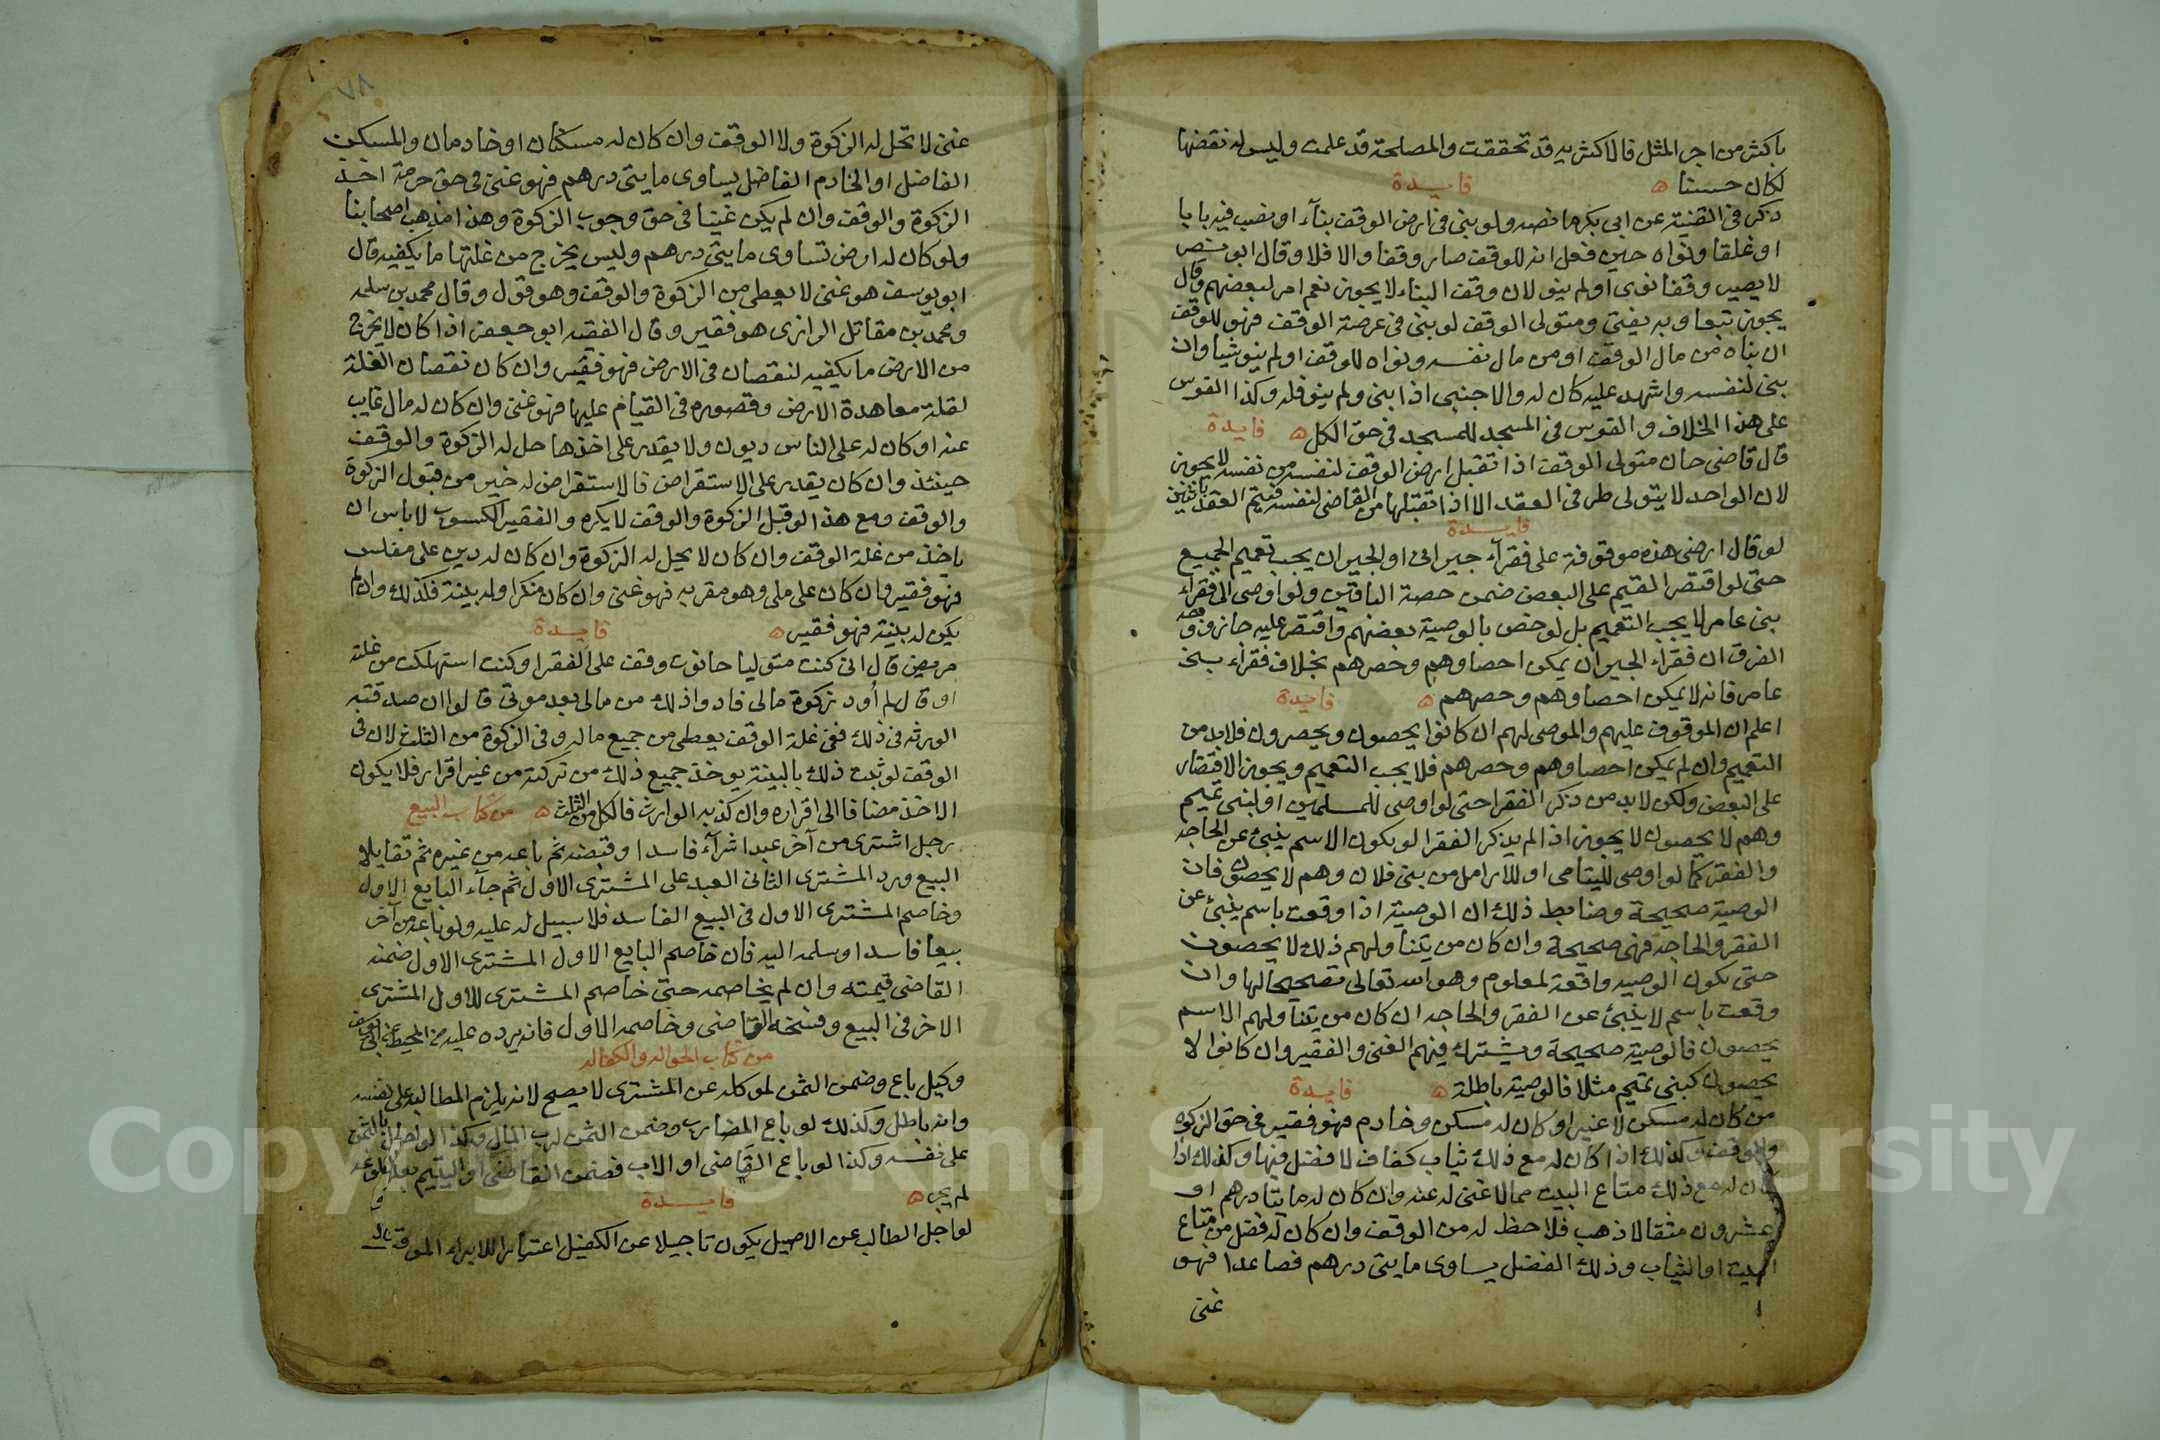 باكثر من اجر المثل فالاكثرية قد تحققت والمصلحة قد علمت وليس له نقضها
لكان حسنا ه فايدة
ذكر في القنية عن ابي بكر ولو بنى في ارض الوقف بناء او نصب فيه بابا
او غلقا ونواه حين فعل انه للوقف صار وقفا والا فلا وقال ابو نصر
لا يصير وقفا نوى او لم ينو لان وقف البناء لا يجوز نعم امر لبعضهم وقال
يجوز تبعا وبه يفتي ومتولى الوقف لو بنى في عرصة الوقف فهو للوقف
ان بناه من مال الوقف او من مال نفسه ونواه للوقف او لم ينو شيا وان
بنى لنفسه واشهد عليه كان له والاجنبي اذا بنى ولم ينو فله وكذا الغرس
على هذا الخلاف والغرس في المسجد للمسجد في حق الكل ه فايدة
قال قاضي خان متولى الوقف اذا تقبل ارض الوقف لنفسه من نفسه لا يجوز
لان الواحد لا يتولى طرفي العقد الا اذا تقبلها من القاضي لنفسه فيتم العقد باثنين
فايدة
لو قال ارضي هذه موقوفة على فقرآء جيراني او الجيران يجب تعميم الجميع
حتى لو اقتصر القيم على البعض ضمن حصة الباقين ولو اوصى الى فقراء
بني عامر لا يجب التعميم بل لو خص بالوصية بعضهم واقتصر عليه جاز ووجه
الفرق ان فقراء الجيران يمكن احصاوهم وحصرهم بخلاف فقراء بني
عامر فانه لا يمكن احصاوهم وحصرهم ه فايدة
اعلم ان الموقوف عليهم والموصى لهم ان كانوا يحصون ويحصرون فلابد من
التعميم وان لم يمكن احصاوهم وحصرهم فلا يجب التعميم ويجوز الاقتصار
على البعض ولكن لابد من ذكر الفقرا حتى لو اوصى للمسلمين او لبني تميم
وهم لا يحصون لا يجوز اذا لم يذكر الفقرا لو يكون الاسم ينبئ عن الحاجة
والفقر كما لو اوصى لليتامى او للارامل من بني فلان وهم لا يحصون فان
الوصية صحيحة وضابط ذلك ان الوصية اذا وقعت باسم ينبئ عن
الفقر والحاجة فهي صحيحة وان كان من يتناولهم ذلك لا يحصون
حتى يكون الوصيه واقعة لمعلوم وهو الله تعالى تصحيحا لها وان
وقعت باسم لا ينبئ عن الفقر والحاجه ان كان من يتناولهم الاسم
يحصون فالوصية صحيحة ويشترك فيهم الغني والفقير وان كانوا لا
يحصون كبني تميم مثلا فالوصية باطلة ه فايدة
من كان له مسكن لا غير او كان له مسكن وخادم فهو فقير في حق الزكوة
والوقف وكذلك اذا كان له مع ذلك ثياب كفاف لا فضل فيها وكذلك اذا
كان له مع ذلك متاع البيت مما لا غنى له عنه وان كان له مايتا درهم او
عشرون مثقالا ذهب فلا حظ له من الوقف وان كان له فضل من متاع
البيت او الثياب وذلك الفضل يساوى مايتى درهم فصاعدا فهو
غنى
٧٨
غنى لا تحل له الزكوة ولا الوقف وان كان له مسكنان او خادمان والمسكن
الفاضل او الخادم الفاضل يساوى مايتى درهم فهو غنى في حق حرمة اخذ
الزكوة والوقف وان لم يكن غنيا في حق وجوب الزكوة وهذا مذهب اصحابنا
ولو كان له ارض تساوى مايتى درهم وليس يخرج من غلتها ما يكفيه قال
ابو يوسف هو غنى لا يعطى من الزكوة والوقف وهو قول وقال محمد بن سلمه
ومحمد بن مقاتل الرازى هو فقير وقال الفقيه ابو جعفر اذا كان لا يخرج
من الارض ما يكفيه لنقصان في الارض فهو فقير وان كان نقصان الغلة
لقلة معاهدة الارض وقصوره في القيام عليها فهو غنى وان كان له مال غايب
عنه او كان له على الناس ديون ولا يقدر على اخذها حل له الزكوة والوقف
حينئذ وان كان يقدر على الاستقراض فالاستقراض له خير من قبول الزكوة
والوقف ومع هذا لو قبل الزكوة والوقف لا يكره والفقير الكسوب لا باس ان
ياخذ من غلة الوقف وان كان لا يحل له الزكوة وان كان له دين على مفلس
فهو فقير وان كان على ملى وهو مقر به فهو غنى وان كان منكرا وله بينة فكذلك وان لم
يكن له بينة فهو فقير ه فايدة
مريض قال انى كنت متوليا حانوت وقف على الفقرا وكنت استهلكت من غلته
او قال لم أود زكوة مالى فادوا ذلك من مالى بعد موتى قالوا ان صدقته
الورثه في ذلك ففى غلة الوقف يعطى من جميع ماله وفى الزكوة من الثلث لان فى
الوقف لو ثبت ذلك بالبينة يوخذ جميع ذلك من تركته من غير اقرار فلا يكون
الاخذ مضافا الى اقراره وان كذبه الوارث فالكل من الثلث ه من كتاب البيع
رجل اشترى من آخر عبدا شرآء فاسدا وقبضه ثم باعه من غيره ثم تقايلا
البيع ورد المشترى الثانى العبد على المشترى الاول ثم جآء البايع الاول
وخاصم المشترى الاول في البيع الفاسد فلا سبيل له عليه ولو باعه من آخر
بيعا فاسدا وسلمه اليه فان خاصم البايع الاول المشترى الاول ضمنه
القاضى قيمته وان لم يخاصمه حتى خاصم المشترى للاول المشترى
الاخر في البيع وفسخه القاضى وخاصمه الاول فانه يرده عليه من المحيط عن ابى يوسف
من كتاب الحواله والكفاله
وكيل باع وضمن الثمن لموكله عن المشترى لا يصح لانه يلزم المطالبه على نفسه
وانه باطل وكذلك لو باع المضارب وضمن الثمن لرب المال وكذا
على نفسه وكذا لو باع القاضى او الاب فضمن القاضى او اليتيم بعد بلوغه
لم يجب ه فايدة
لو اجل الطالب عن الاصيل يكون تاجيلا عن الكفيل اعتبارا للابراء الموقت